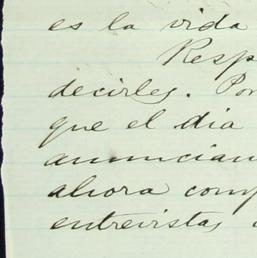 es la vida
Resp
decirles. Por
que el dia
anuncian
ahora comp
entrevistas